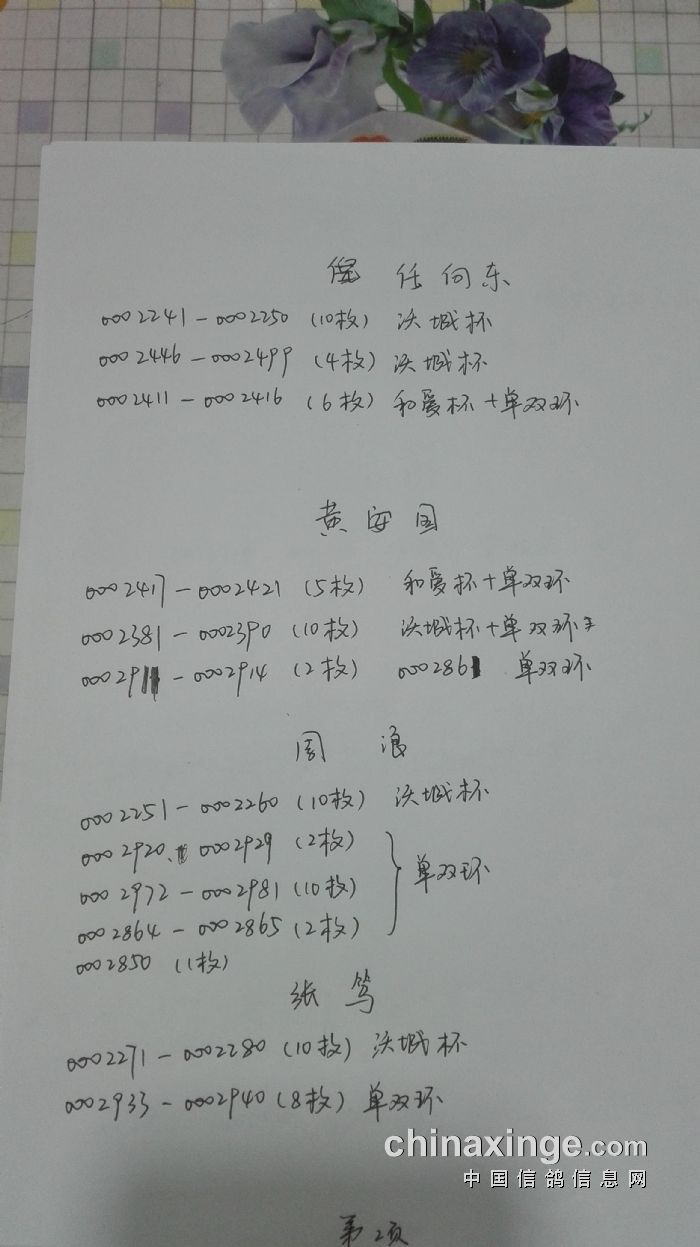 任何东
0002241-0002250 (10枚) 沃城杯
0002446-0002499 (4枚) 沃城杯
0002411-0002416 (6枚) 和爱杯+单双环
黄安国
0002417-0002421 (5枚) 和爱杯+单双环
0002381-0002390 (10枚) 沃城杯+单双环
00029 - 0002914 (2枚) 000286 单双环
周浪
0002251-0002260 (10枚) 沃城杯
0002920、0002929 (2枚)
0002972-0002981 (10枚) 单双环
0002864-0002865 (2枚)
0002850 (1枚)
纸笃
0002271-0002280 (10枚) 沃城杯
0002933-0002940 (8枚) 单双环
chinaxinge.com
中国信鸽信息网
第2页